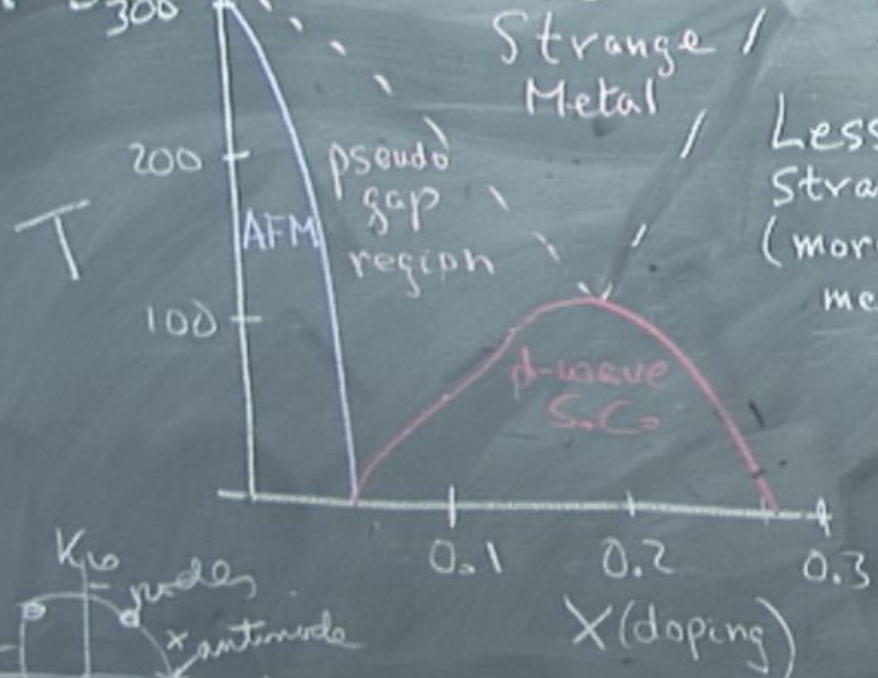 300
Strange
Metal
Less
Stra
(mor
me
pseudo
gap
region
200
T
AFM
100
d-wave
S.C.
0.1
0.2
0.3
X (doping)
nodes
x antinode